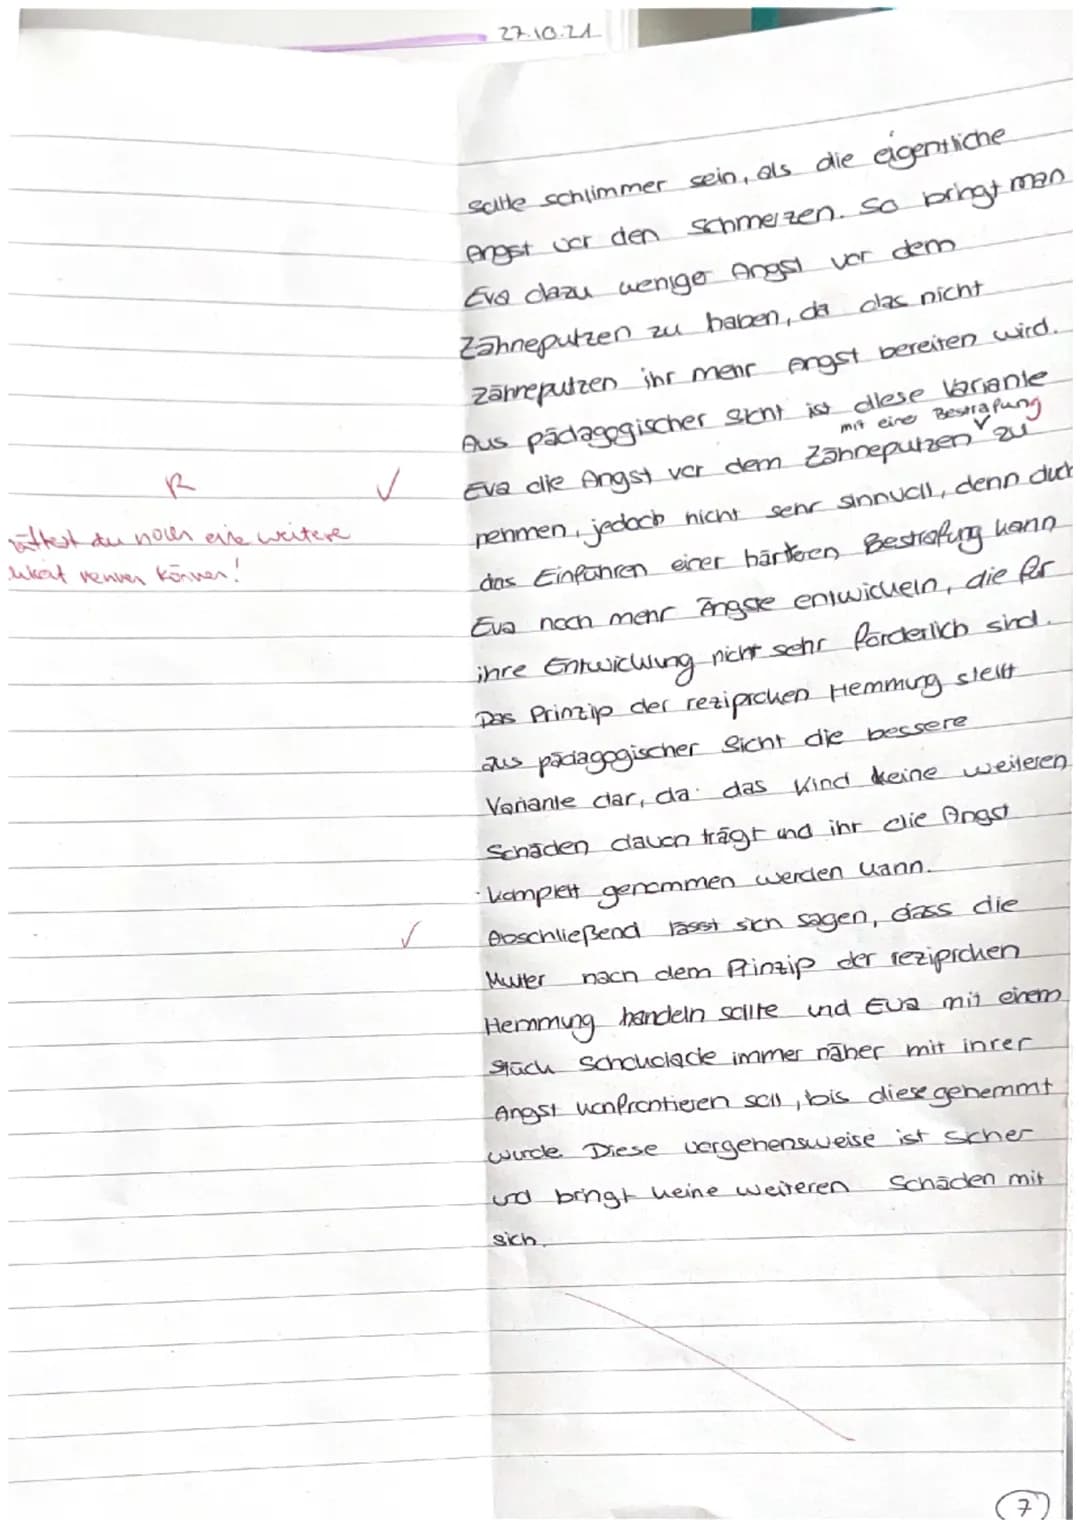 27.10.21
sollte schlimmer sein, als die eigentliche
Angst vor den Schmerzen. So bringt man
Eva dazu weniger Angst vor dem
Zähneputzen zu haben, da das nicht
zähneputzen ihr mehr Angst bereiten wird.
Aus pädagogischer Sicht ist diese Variante
mit eine Bestrafung
Eva die Angst vor dem Zähneputzen zu
nehmen, jedoch nicht sehr sinnvoll, denn durch
das Einführen einer härteren Bestrafung kann
Eva noch mehr Ängste entwickeln, die für
ihre Entwicklung nicht sehr förderlich sind.
Das Prinzip der reziproken Hemmung stellt
aus pädagogischer Sicht die bessere
Variante dar, da das Kind keine weiteren
Schäden davon trägt und ihr die Angst
komplett genommen werden kann.
Abschließend lässt sich sagen, dass die
Mutter nach dem Prinzip der reziproken
Hemmung handeln sollte und Eva mit einem
Stück Schokolade immer näher mit ihrer
Angst konfrontieren soll, bis diese gehemmt
wurde. Diese vorgehensweise ist sicher
und bringt keine weiteren Schäden mit
sich.
R
hättest du noch eine weitere
nennen können!
7